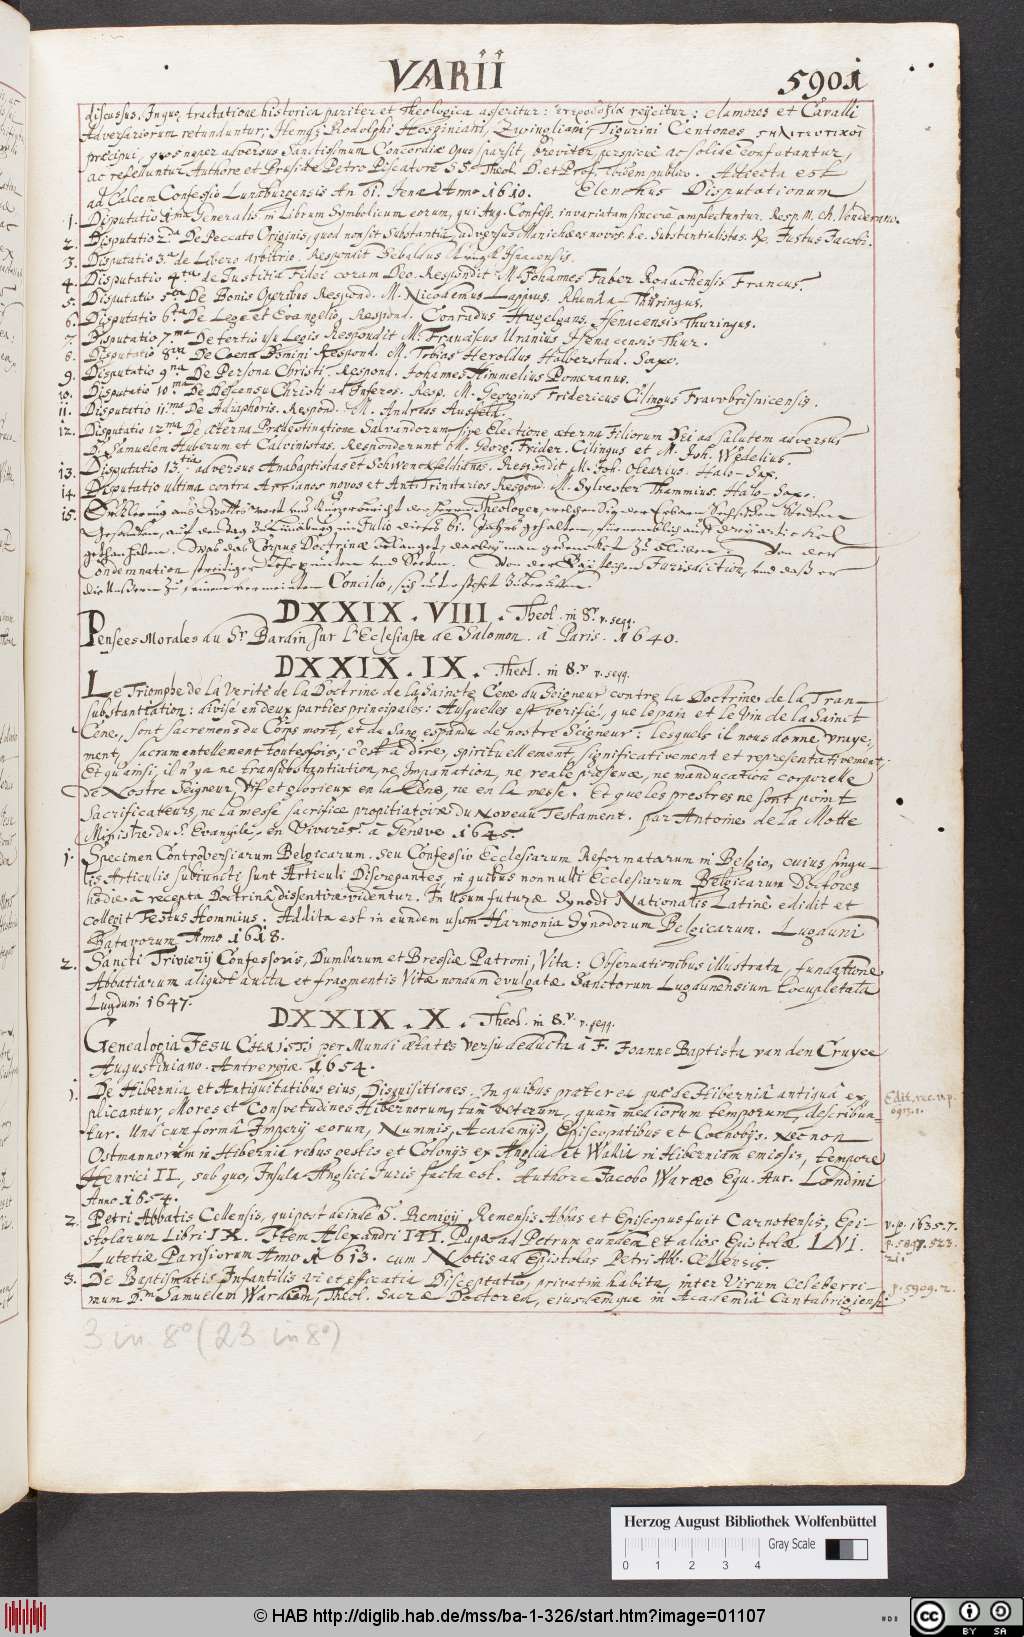 VARII
5901
discursus. In quo, tractatione historica pariter et Theologica asseritur: reijcitur: clamores et Cavalli
Adversariorum retunduntur; Itemq; Rodolphi Hospiniani, Zwingliani, Tigurini Centones
præcipui, quos nuper adversus Sanctissimum Concordiæ Opus sparsit, breviter perspicuè ac solidè confutantur,
ac refelluntur Authore et Præside Petro Piscatore SS. Theol. D. et Prof. ibidem publico. Adiecta est
ad Calcem Confessio Lunæburgensis An. 61. Jenæ Anno 1610. Elenchus Disputationum
1. Disputatio 1ma Generalis in Librum Symbolicum eorum, qui Aug. Confess. invariatam sincerè amplectuntur. Resp. M. Ch.
2. Disputatio 2da De Peccato Originis, quod non sit Substantia, adversus Manichæos novos h.e. Substantialistas. Rp. Justus Jacobi.
3. Disputatio 3.a de Libero arbitrio. Respondit Sebaldus Krugk Isnacensis.
4. Disputatio 4ta de Justitia Fidei coram Deo. Respondit M. Johannes Faber Rodachensis Francus.
5. Disputatio 5ta De Bonis Operibus Respond. M. Nicodemus Lappius. Rhumla-Thüringus.
6. Disputatio 6ta De Lege et Evangelio, Respond. Conradus Hugelgans. Isenacensis Thuringus.
7. Disputatio 7.ma De tertio usu Legis Respondit M. Franciscus Uranius Isenacensis Thur.
8. Disputatio 8va De Coena Domini Respond. M. Tobias Heroldus Halberstad. Saxo.
9. Disputatio 9na De Persona Christi, Respond. Johannes Himmelius Pomeranus.
10. Disputatio 10ma De Descensu Christi ad Inferos. Resp. M. Georgius Fridericus Cilingus Fravvbrisnicensis.
11. Disputatio 11.ma De Adiaphoris. Respond. M. Andreas Ausfeld.
12. Disputatio 12ma De Æterna Prædestinatione Salvandorum sive Electione æterna Filiorum DEI ad salutem adversus
D. Samuelem Huberum et Calvinistas. Responderunt M. Georg. Frider. Cilingus et M. Joh. Wedelius.
13. Disputatio 13.tia adversus Anabaptistas et Schwenckfeldianos. Respondit M. Joh. Olearius. Halo-Sax.
14. Disputatio ultima contra Arrianos novos et AntiTrinitarios Respond. M. Sylvester Thammius. Halo-Saxo.
15. Erklerung aus Gottes wort und kurtzer bericht der Herren Theologen, welchen Sie der Erbarn Sechsischen Stedten
Gesandten, auf den Tag zu Lüneburg, im Julio dieses 61. Jahrs gehalten, fürnemlich auf drey artickel
gethan haben. Was das Corpus Doctrinæ belanget, darbey man gedencket zu bleiben. Von der
Condemnation streitiger Lehrpuncten und Secten. Von der Bäpstischen Jurisdiction, und daß er
die Unsern zu seinem vermeinten Concilio,
DXXIX. VIII. Theol. in 8.v v. seqq.
Pensees Morales du Sr. Bardin sur L'Eclesiaste de Salomon. à Paris. 1640.
DXXIX. IX. Theol. in 8.v v. seqq.
Le Triomphe de la Verité de la Doctrine de la Saincte Cene du Seigneur contre la Doctrine de la Tran-
substantiation: divisé en deux parties principales: Ausquelles est verifié, que le pain et le Vin de la Sainct
Cene, sont sacremens du Corps mort, et du Sang espandu de nostre Seigneur: lesquels il nous donne vraye-
ment, sacramentellement toutesfois; c'est à dire, spirituellement, significativement et representativement;
Et qu'ainsi, il n'y a ne transsubstantiation, ne Impanation, ne reale presence, ne manducation corporelle
de Nostre Seigneur, Vif et glorieux en la Cene, ne en la messe. Et que les prestres ne sont point
Sacrificateurs, ne la messe sacrifice propitiatoire du Noveau Testament. par Antoine de la Motte
Ministre du S. Evangile, en Vivarés. a Geneve 1645.
1. Specimen Controversiarum Belgicarum. Seu Confessio Ecclesiarum Reformatarum in Belgio, cuius singu-
lis Articulis subiuncti sunt Articuli Discrepantes, in quibus nonnulli Ecclesiarum Belgicarum Doctores
hodie à recepta Doctrinâ dissentire videntur. In Usum futuræ Synodi Nationalis Latinè edidit et
collegit Festus Hommius. Addita est in eundem usum Harmonia Synodorum Belgicarum. Lugduni
Batavorum Anno 1618.
2. Sancti Triverij Confessoris, Dumbarum et Bressiæ Patroni, Vita: Observationibus illustrata, fundatione
Abbatiarum aliquot aucta et fragmentis Vitæ nondum evulgatæ Sanctorum Lugdunensium locupletata
Lugduni 1647.
DXXIX. X. Theol. in 8.v v. seqq.
Genealogia JESU CHRISTI per Mundi ætates versu deducta à F. Joanne Baptista van den Cruyce
Augustiniano. Antverpiæ 1654.
1. De Hibernia et Antiquitatibus eius, Disquisitiones. In quibus præter ea quæ de Hibernia antiqua ex-
plicantur, Mores et Consvetudines Hibernorum, tam veterum, quam mediorum temporum, describun-
tur. Unà cum formâ Imperij eorum, Nummis, Academijs, Episcopatibus et Coenobijs. Necnon
Ostmannorum in Hibernia rebus gestis et Colonijs ex Anglia et Wallia in Hiberniam emissis, tempore
Henrici II, sub quo, Insula Anglici Iuris facta est. Authore Jacobo Waræo Equ. Aur. Londini
Anno 1654.
Edit. rec. v. p.
2. Petri Abbatis Cellensis, qui post deinde S. Remigij Remensis Abbas et Episcopus fuit Carnotensis, Epi-
stolarum Libri IX. Item Alexandri III. Papæ ad Petrum eundem et alios Epistolæ LVI.
Lutetiæ Parisiorum Anno 1613. cum Notis ad Epistolas Petri Ab. Cellensis.
v. p. 1635.7.
p. 5847. 523.
3. De Baptismatis Infantilis vi et efficacia Disceptatio, privatim habita, inter Virum Celeberri-
mum Dm. Samuelem Wardum, Theol. Sacræ Doctorem, eiusdemque in Academiâ Cantabrigiensi
p. 5909. 2.
3 in 8° (23 in 8°)
Herzog August Bibliothek Wolfenbüttel
0 1 2 3 4
Gray Scale
© HAB http://diglib.hab.de/mss/ba-1-326/start.htm?image=01107
cc BY SA